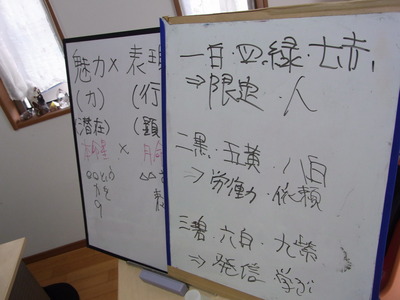 魅力×表現
(力) (行
(潜在) (顕
本命星 × 月命
一白・四緑・七赤
⇒限定・人
二黒・五黄・八白
⇒労働力・依頼
三碧・六白・九紫
⇒発信 学び